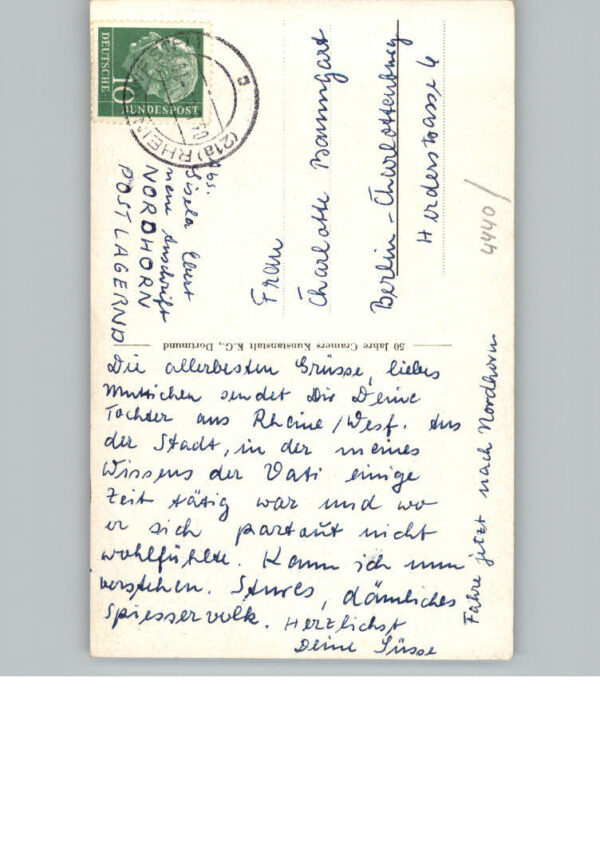 DEUTSCHE
10
BUNDESPOST
(21a) RHEIN
Abs.
Gisela Ebert
neue Anschrift
NORDHORN
POSTLAGERND
Frau
Charlotte Baumgart
Berlin-Charlottenburg
Herderstrasse 6
4440/
50 Jahre Cramers Kunstanstalt K.G., Dortmund
Die allerbesten Grüsse, liebes
Muttichen sendet Dir Deine
Tochter aus Rheine/Westf. Aus
der Stadt, in der meines
Wissens der Vati einige
Zeit tätig war und wo
er sich partout nicht
wohlfühlte. Kann ich nun
verstehen. Stures, dämliches
Spiesservolk. Herzlichst
Deine Süsse
Fahre jetzt nach Nordhorn